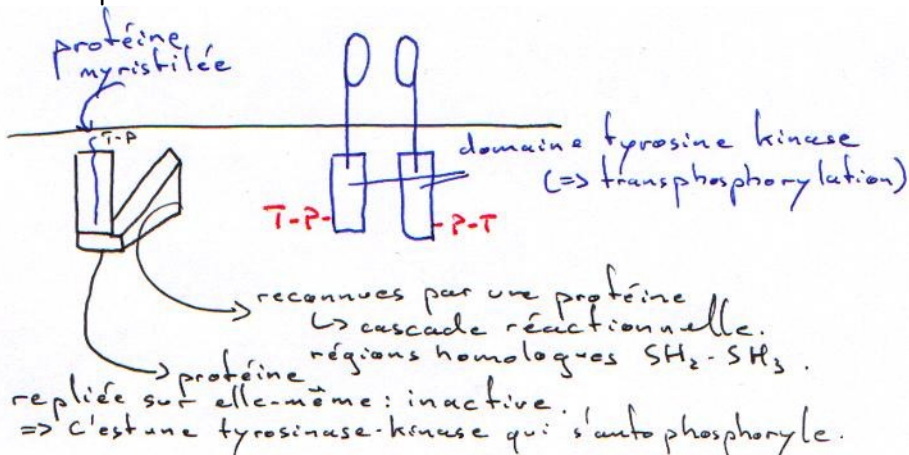 protéine
myristilée
T-P
domaine tyrosine kinase
(=> transphosphorylation)
T-P-
-P-T
reconnues par une protéine
↳ cascade réactionnelle.
régions homologues SH₂-SH₃.
protéine
repliée sur elle-même : inactive.
=> C'est une tyrosinase-kinase qui s'autophosphoryle.